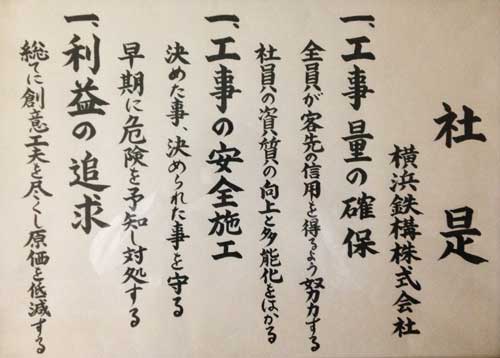 社是
横浜鉄構株式会社
一、工事量の確保
全員が客先の信用を得るよう努力する
社員の資質の向上と多能化をはかる
一、工事の安全施工
決めた事、決められた事を守る
早期に危険を予知し対処する
一、利益の追求
総てに創意工夫を尽くし原価を低減する